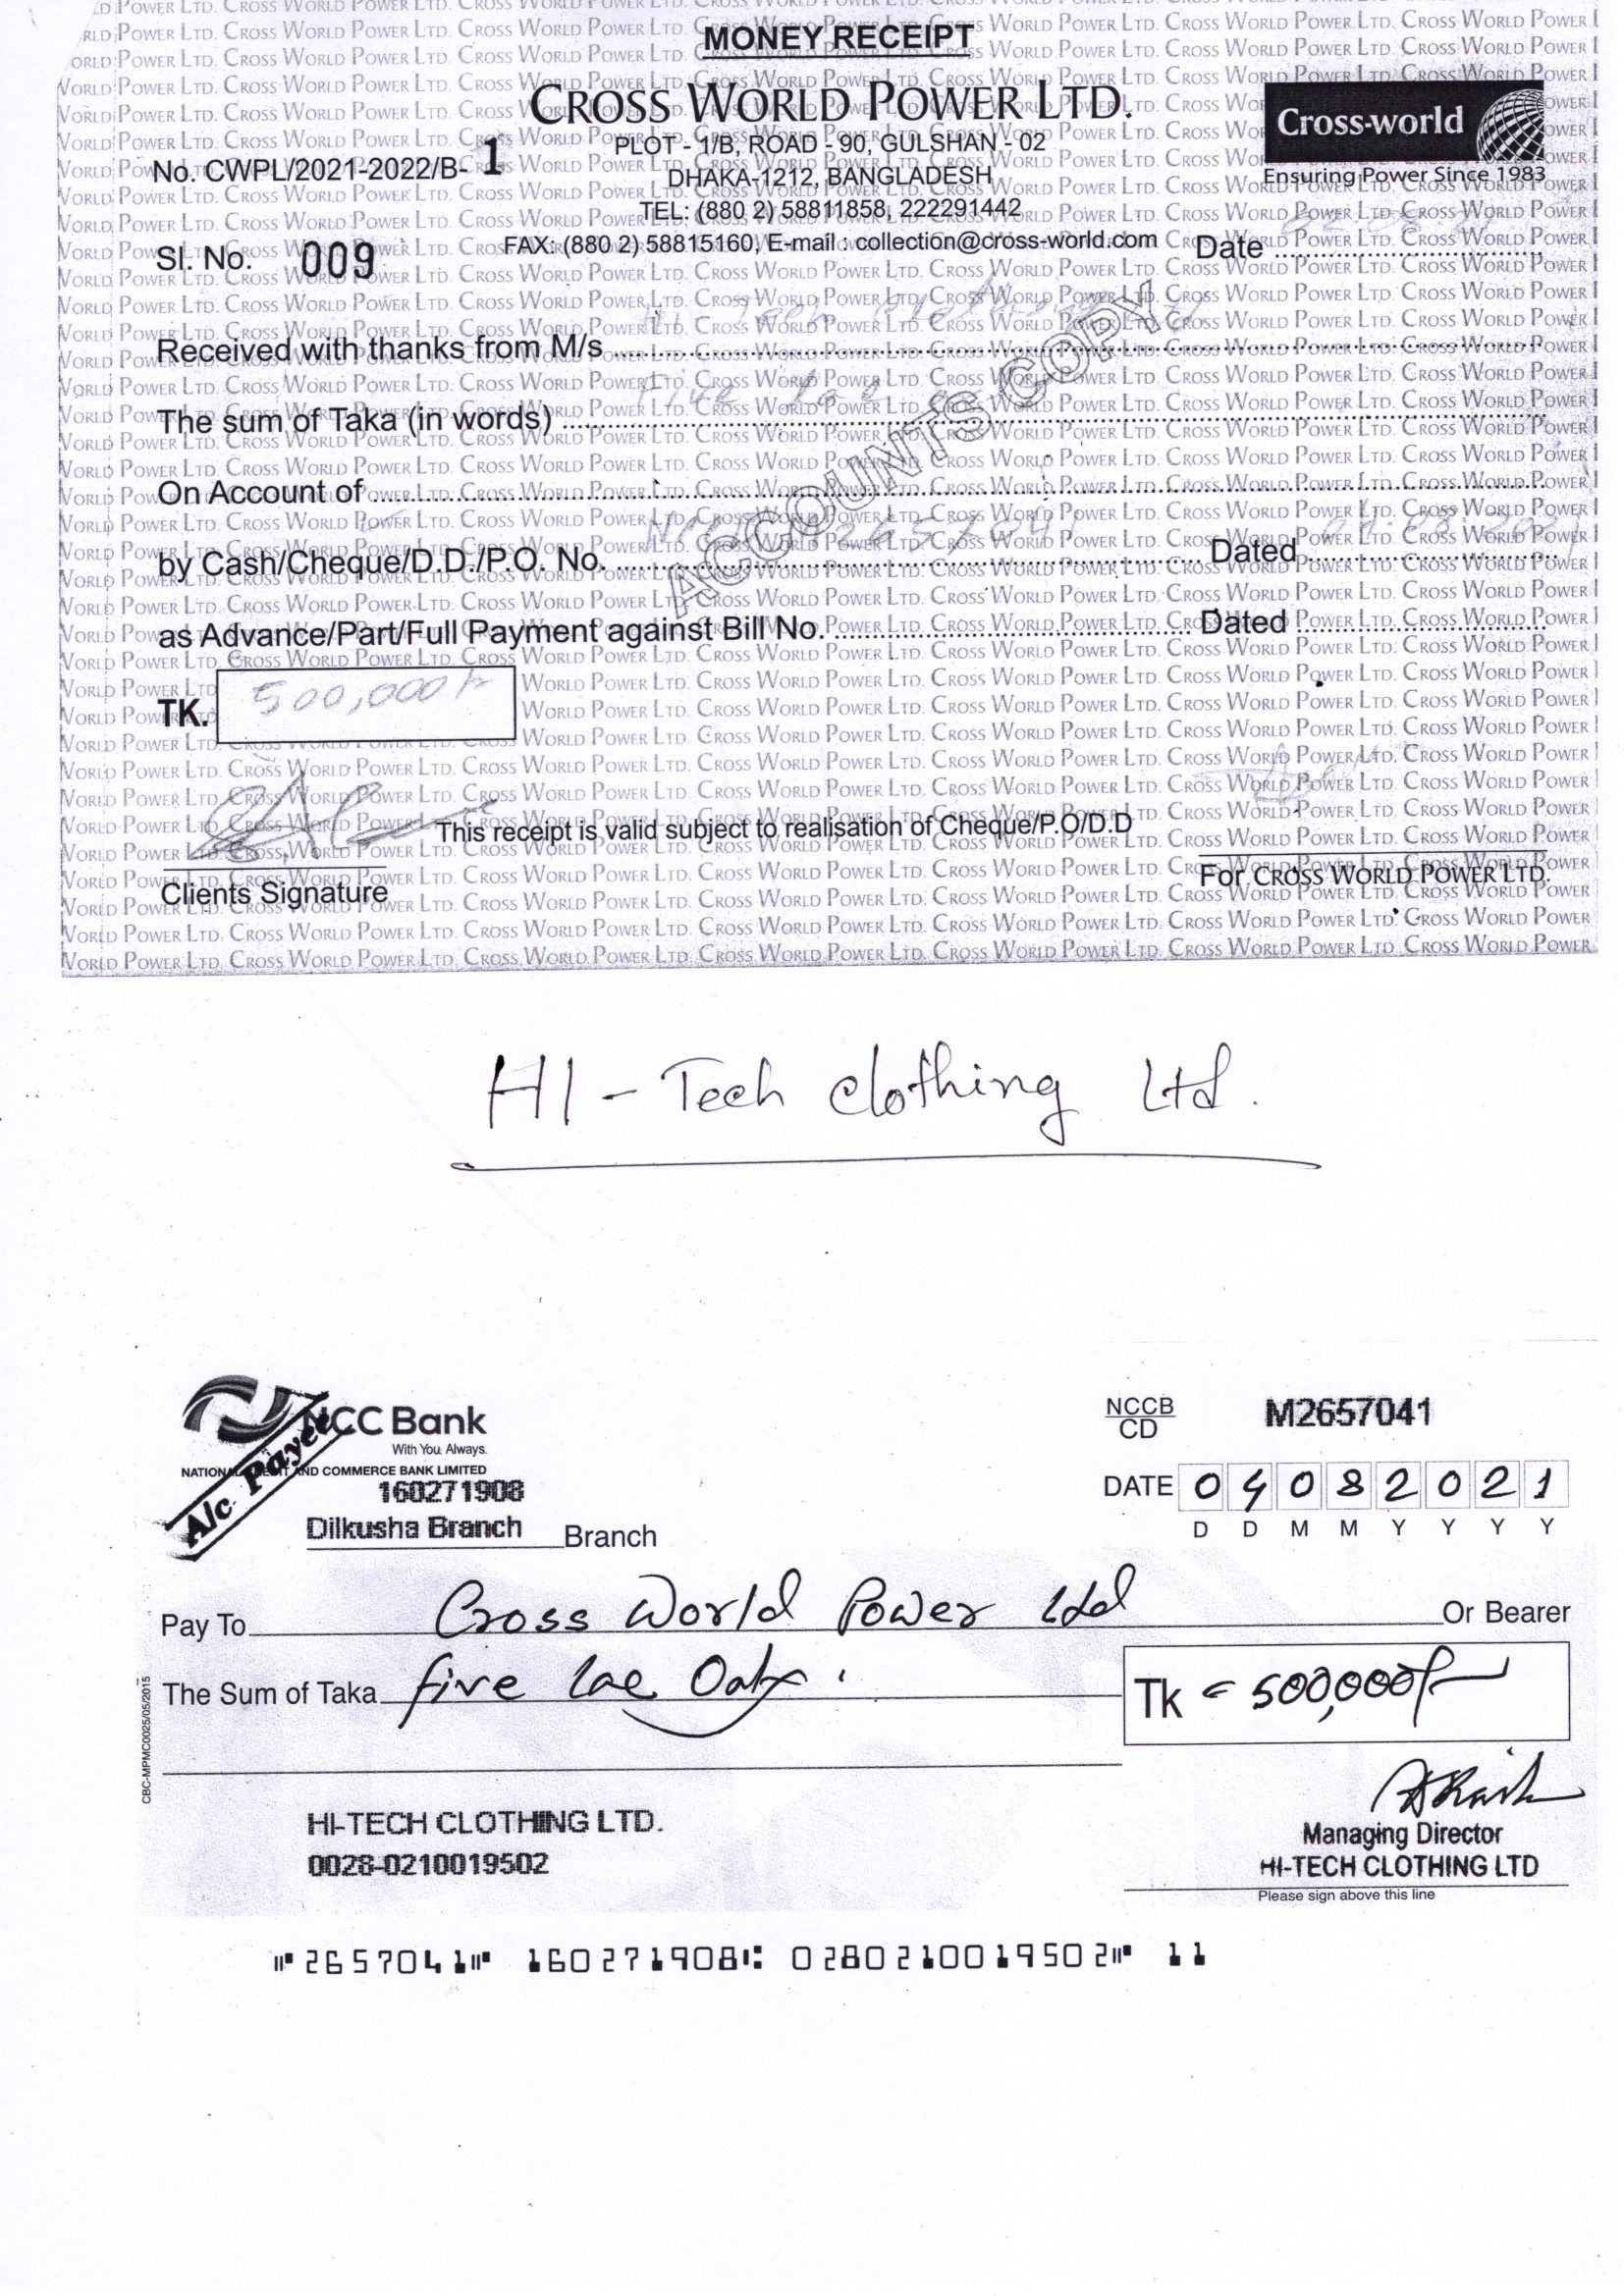 MONEY RECEIPT
CROSS WORLD POWER LTD.
PLOT - 1/B, ROAD - 90, GULSHAN - 02
DHAKA-1212, BANGLADESH
TEL: (880 2) 58811858, 222291442
FAX: (880 2) 58815160, E-mail : collection@cross-world.com
Cross-world
Ensuring Power Since 1983
No. CWPL/2021-2022/B- 1
Sl. No. 009
Date
Received with thanks from M/s Hi-Tech
The sum of Taka (in words) Five lac
On Account of
by Cash/Cheque/D.D./P.O. No. 2657041 Dated 04.08.2021
as Advance/Part/Full Payment against Bill No. Dated
TK. 500,000/-
ACCOUNTS COPY
This receipt is valid subject to realisation of Cheque/P.O/D.D
Clients Signature
For CROSS WORLD POWER LTD.
HI - Tech clothing Ltd.
NCC Bank
With You. Always.
NATIONAL CREDIT AND COMMERCE BANK LIMITED
A/c Payee
160271908
Dilkusha Branch Branch
NCCB
CD
M2657041
DATE 04082021
D D M M Y Y Y Y
Pay To Cross World Power Ltd Or Bearer
The Sum of Taka five lac Only.
Tk = 500,000/-
CBC-MPMC0025/05/2015
HI-TECH CLOTHING LTD.
0028-0210019502
Managing Director
HI-TECH CLOTHING LTD
Please sign above this line
2657041 160271908 0280210019502 11